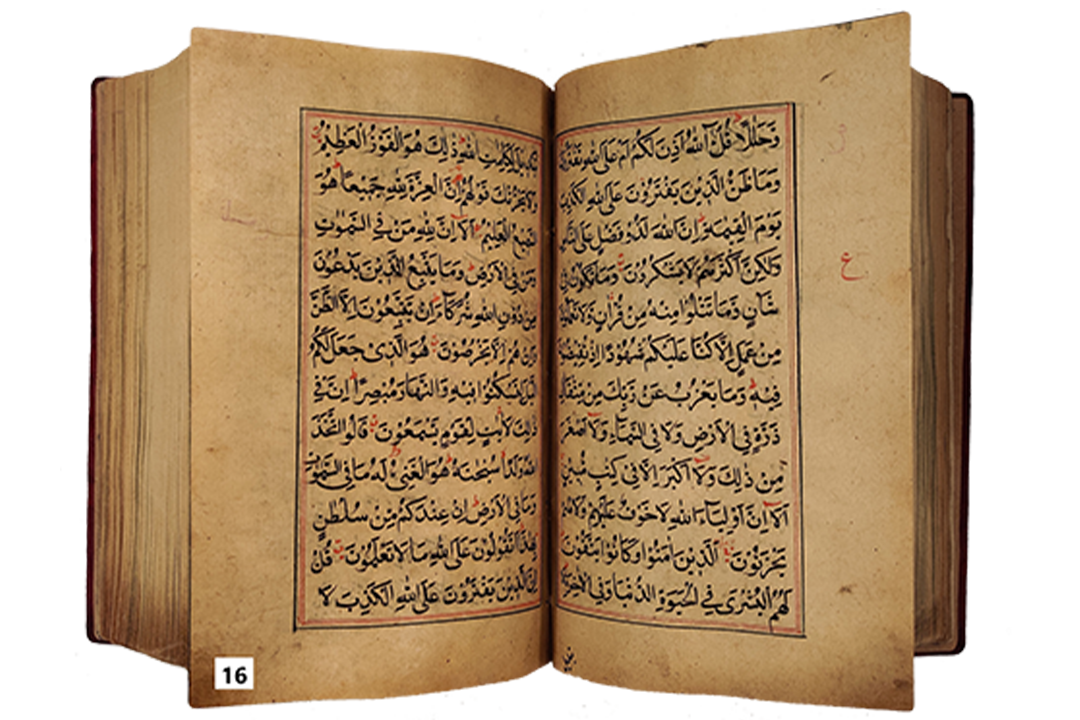 وَّحَلٰلًا قُلْ آٰللّٰهُ اَذِنَ لَكُمْ اَمْ عَلَى اللّٰهِ تَفْتَرُوْنَ
وَمَا ظَنُّ الَّذِيْنَ يَفْتَرُوْنَ عَلَى اللّٰهِ الْكَذِبَ
يَوْمَ الْقِيٰمَةِ اِنَّ اللّٰهَ لَذُوْ فَضْلٍ عَلَى النَّاسِ
وَلٰكِنَّ اَكْثَرَهُمْ لَا يَشْكُرُوْنَ وَمَا تَكُوْنُ فِيْ
شَاْنٍ وَّمَا تَتْلُوْا مِنْهُ مِنْ قُرْاٰنٍ وَّلَا تَعْمَلُوْنَ
مِنْ عَمَلٍ اِلَّا كُنَّا عَلَيْكُمْ شُهُوْدًا اِذْ تُفِيْضُوْنَ
فِيْهِ وَمَا يَعْزُبُ عَنْ رَّبِّكَ مِنْ مِّثْقَالِ
ذَرَّةٍ فِي الْاَرْضِ وَلَا فِي السَّمَآءِ وَلَآ اَصْغَرَ
مِنْ ذٰلِكَ وَلَآ اَكْبَرَ اِلَّا فِيْ كِتٰبٍ مُّبِيْنٍ
اَلَآ اِنَّ اَوْلِيَآءَ اللّٰهِ لَا خَوْفٌ عَلَيْهِمْ وَلَا هُمْ
يَحْزَنُوْنَ الَّذِيْنَ اٰمَنُوْا وَكَانُوْا يَتَّقُوْنَ
لَهُمُ الْبُشْرٰى فِي الْحَيٰوةِ الدُّنْيَا وَفِي الْاٰخِرَةِ
ع
تَبْدِيْلَ لِكَلِمٰتِ اللّٰهِ ذٰلِكَ هُوَ الْفَوْزُ الْعَظِيْمُ
وَلَا يَحْزُنْكَ قَوْلُهُمْ اِنَّ الْعِزَّةَ لِلّٰهِ جَمِيْعًا هُوَ
السَّمِيْعُ الْعَلِيْمُ اَلَآ اِنَّ لِلّٰهِ مَنْ فِي السَّمٰوٰتِ
وَمَنْ فِي الْاَرْضِ وَمَا يَتَّبِعُ الَّذِيْنَ يَدْعُوْنَ
مِنْ دُوْنِ اللّٰهِ شُرَكَآءَ اِنْ يَّتَّبِعُوْنَ اِلَّا الظَّنَّ
وَاِنْ هُمْ اِلَّا يَخْرُصُوْنَ هُوَ الَّذِيْ جَعَلَ لَكُمُ
الَّيْلَ لِتَسْكُنُوْا فِيْهِ وَالنَّهَارَ مُبْصِرًا اِنَّ فِيْ
ذٰلِكَ لَاٰيٰتٍ لِّقَوْمٍ يَّسْمَعُوْنَ قَالُوا اتَّخَذَ
اللّٰهُ وَلَدًا سُبْحٰنَهٗ هُوَ الْغَنِيُّ لَهٗ مَا فِي السَّمٰوٰتِ
وَمَا فِي الْاَرْضِ اِنْ عِنْدَكُمْ مِّنْ سُلْطٰنٍ
بِهٰذَا اَتَقُوْلُوْنَ عَلَى اللّٰهِ مَا لَا تَعْلَمُوْنَ قُلْ
اِنَّ الَّذِيْنَ يَفْتَرُوْنَ عَلَى اللّٰهِ الْكَذِبَ لَا
16